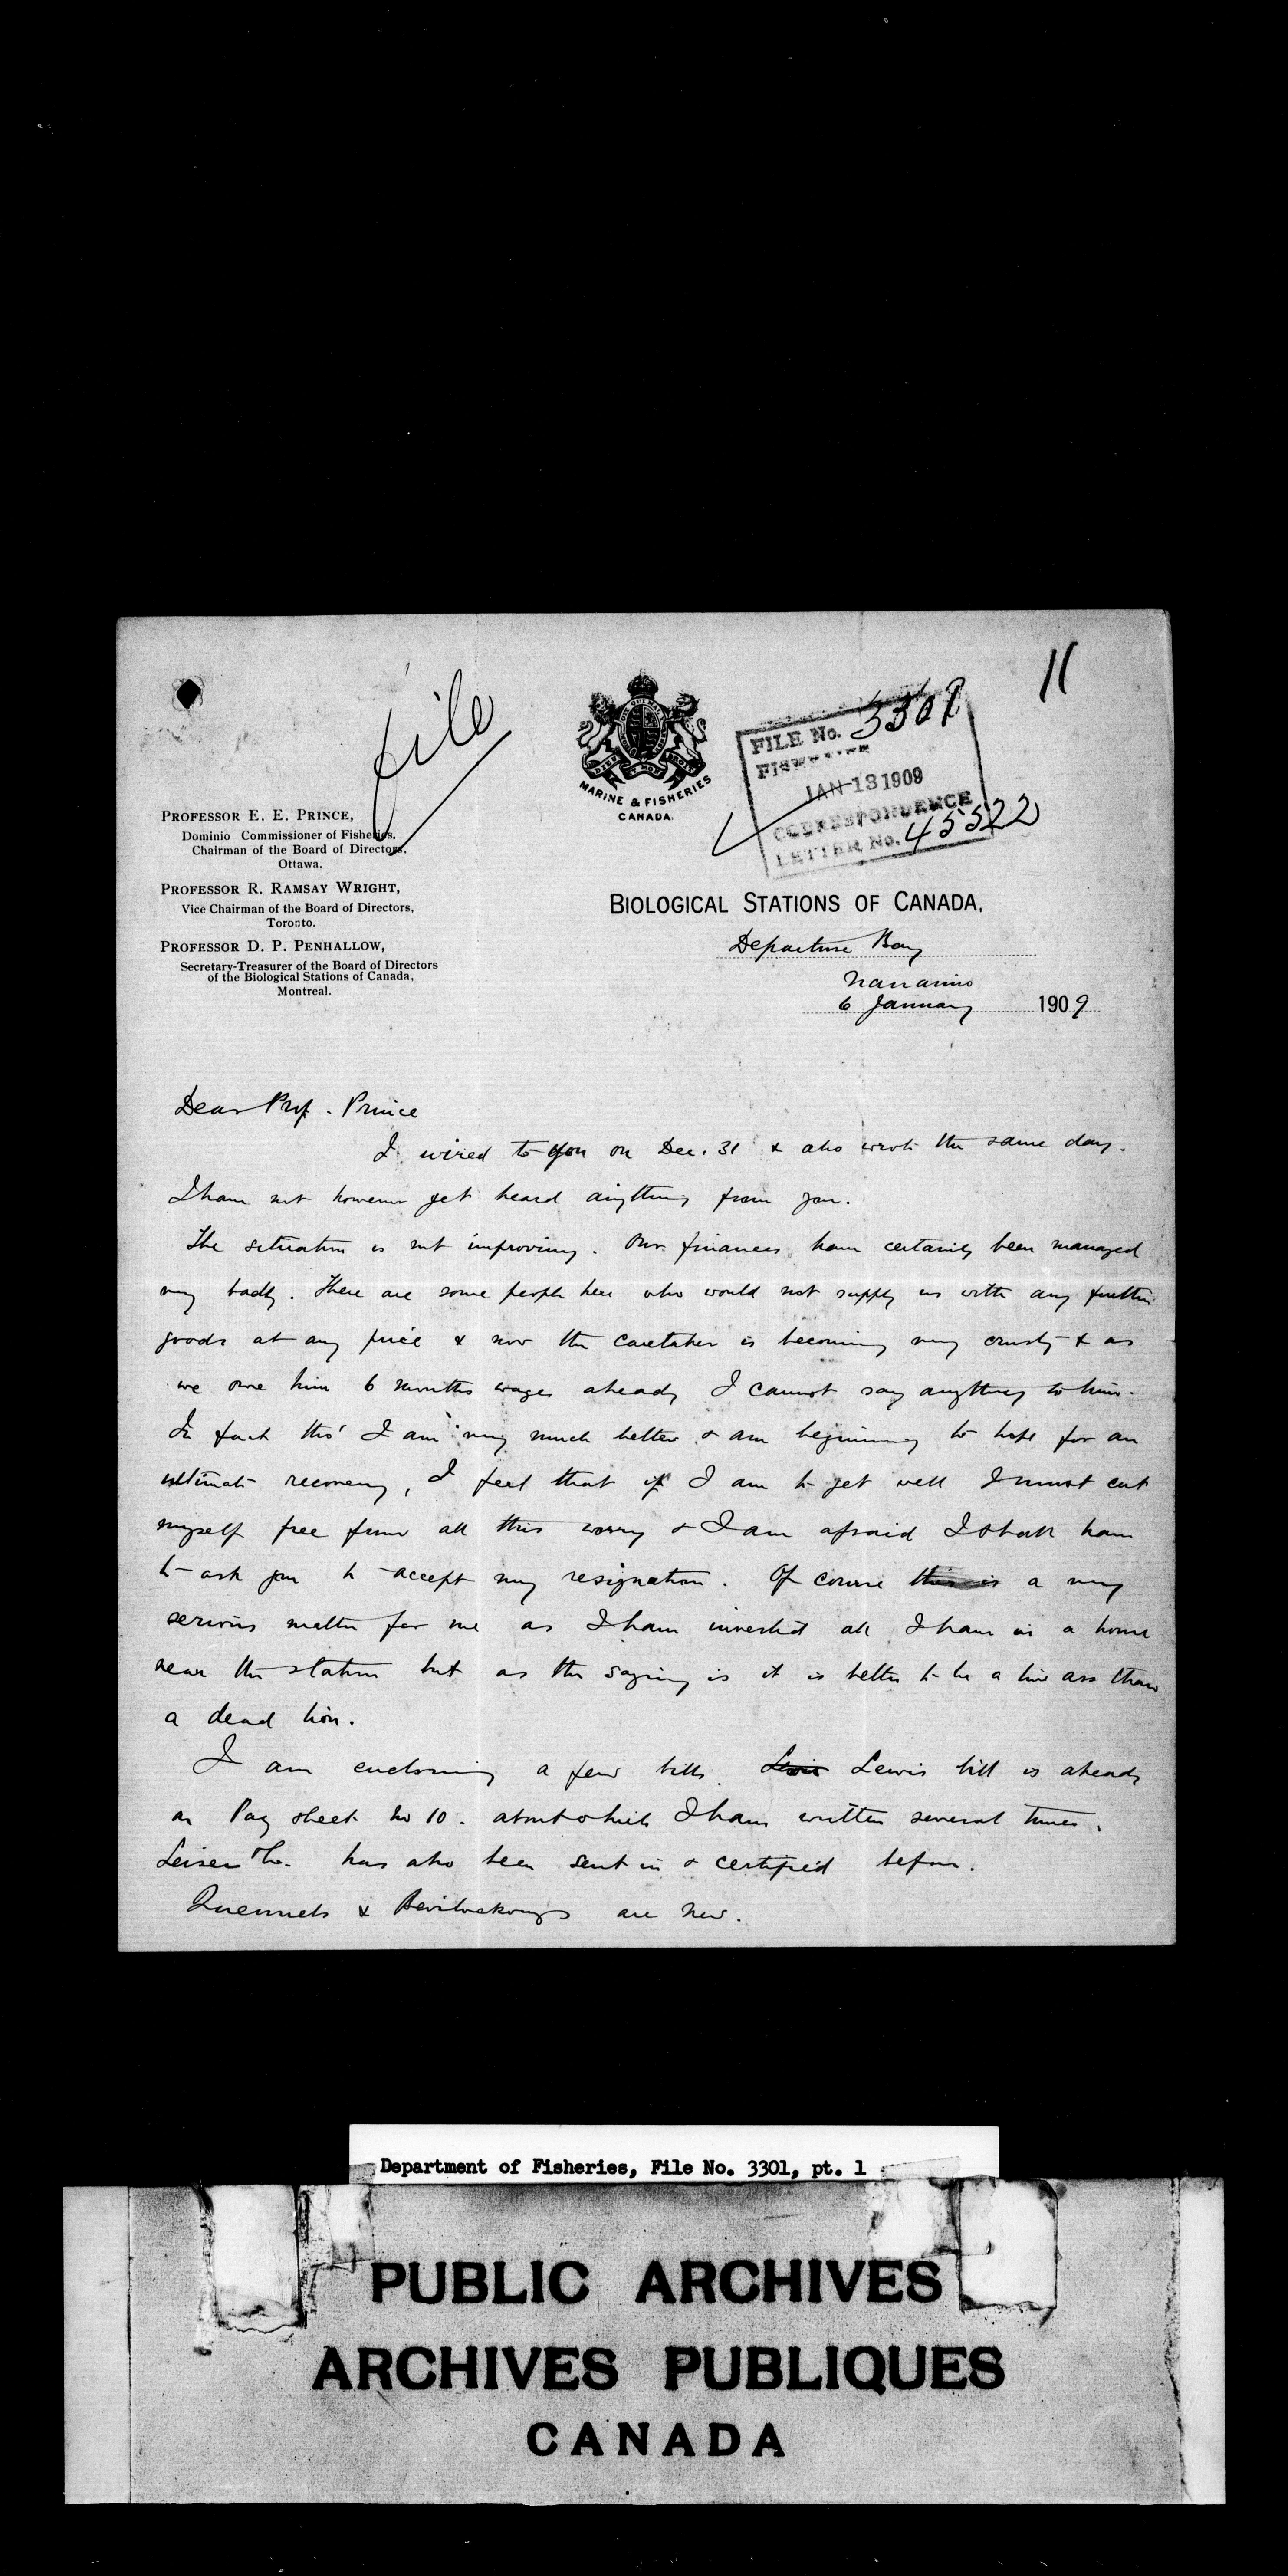 11
file
FILE No. 3301
FISHERIES
JAN 13 1909
CORRESPONDENCE
LETTER No. 45522
DIEU ET MON DROIT
MARINE & FISHERIES
CANADA.
PROFESSOR E. E. PRINCE,
Dominio Commissioner of Fisheries.
Chairman of the Board of Directors,
Ottawa.
PROFESSOR R. RAMSAY WRIGHT,
Vice Chairman of the Board of Directors,
Toronto.
PROFESSOR D. P. PENHALLOW,
Secretary-Treasurer of the Board of Directors
of the Biological Stations of Canada,
Montreal.
BIOLOGICAL STATIONS OF CANADA,
Departure Bay
Nanaimo
6 January 1909
Dear Prof. Prince
I wired to you on Dec. 31 & also wrote the same day.
I have not however yet heard anything from you.
The situation is not improving. Our finances have certainly been managed
very badly. There are some people here who would not supply us with any further
goods at any price & now the caretaker is becoming very crusty & as
we owe him 6 months wages already I cannot say anything to him.
In fact tho' I am very much better & am beginning to hope for an
ultimate recovery, I feel that if I am to get well I must cut
myself free from all this worry & I am afraid I shall have
to ask you to accept my resignation. Of course this is a very
serious matter for me as I have invested all I have in a home
near the station but as the saying is it is better to be a live ass than
a dead lion.
I am enclosing a few bills. Lewis Lewis bill is already
on Pay sheet No 10. about which I have written several times.
Leiser & Co. has also been sent in & certified before.
Quennels & are new.
Department of Fisheries, File No. 3301, pt. 1
PUBLIC ARCHIVES
ARCHIVES PUBLIQUES
CANADA